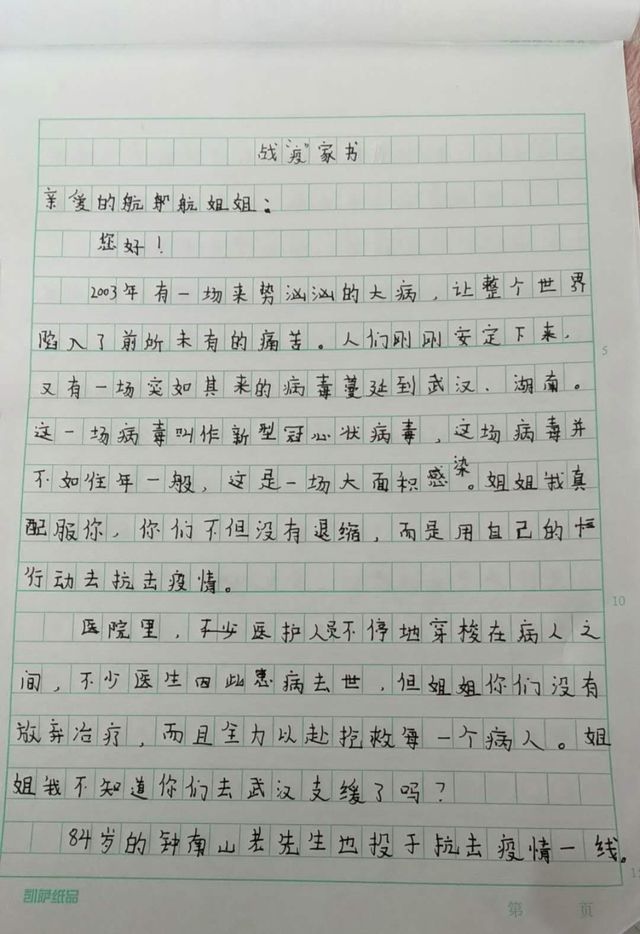 战"疫"家书
亲爱的航航姐姐:
您好!
2003年有一场来势汹汹的大病，让整个世界
陷入了前所未有的痛苦。人们刚刚安定下来，
又有一场突如其来的病毒蔓延到武汉、湖南。
这一场病毒叫作新型冠心状病毒，这场病毒并
不如往年一般，这是一场大面积感染。姐姐我真
配服你，你们不但没有退缩，而是用自己的
行动去抗击疫情。
医院里，不少医护人员不停地穿梭在病人之
间，不少医生因此患病去世，但姐姐你们没有
放弃治疗，而且全力以赴抢救每一个病人。姐
姐我不知道你们去武汉支缓了吗?
84岁的钟南山老先生也投于抗击疫情一线。
5
10
15
凯萨纸品
第 页